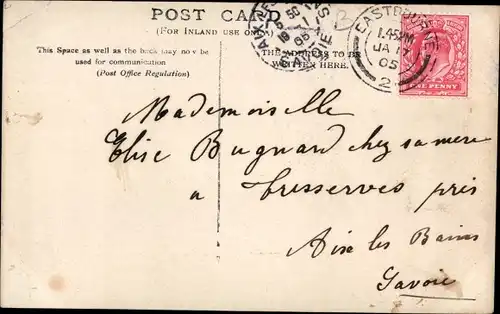 POST CARD
(FOR INLAND USE ONLY)
This Space as well as the back may now be
used for communication
(Post Office Regulation)
THE ADDRESS TO BE
WRITTEN HERE.
EASTBOURNE
1.45PM
JA
05
2
ONE PENNY
Mademoiselle
Elise Bugnard chez sa mère
a Tresserves près
Aix les Bains
Savoie